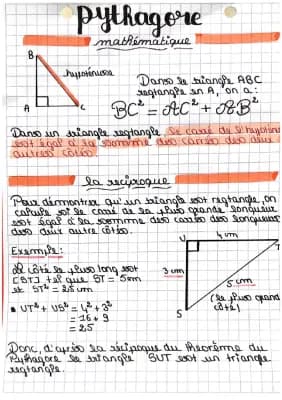 Pythagore
mathématique
B
hypoténuse
A
C
Dans le triangle ABC
rectangle en A, on a:
BC² = AC² + AB²
Dans un triangle rectangle, le carré de l'hypoténuse
est égal à la somme des carrés des deux
autres côtés.
la réciproque
Pour démontrer qu'un triangle est rectangle, on
calcule si le carré de la plus grande longueur
est égal à la somme des carrés des longueurs
des deux autre côtés.
Exemple:
le côté le plus long est
[ST] tel que ST = 5cm
et ST² = 25 cm
• UT² + US² = 4² + 3²
= 16 + 9
= 25
U
4 cm
T
3 cm
5 cm
(le plus grand
côté)
S
Donc, d'après la réciproque du théorème du
Pythagore le triangle SUT est un triangle
rectangle.